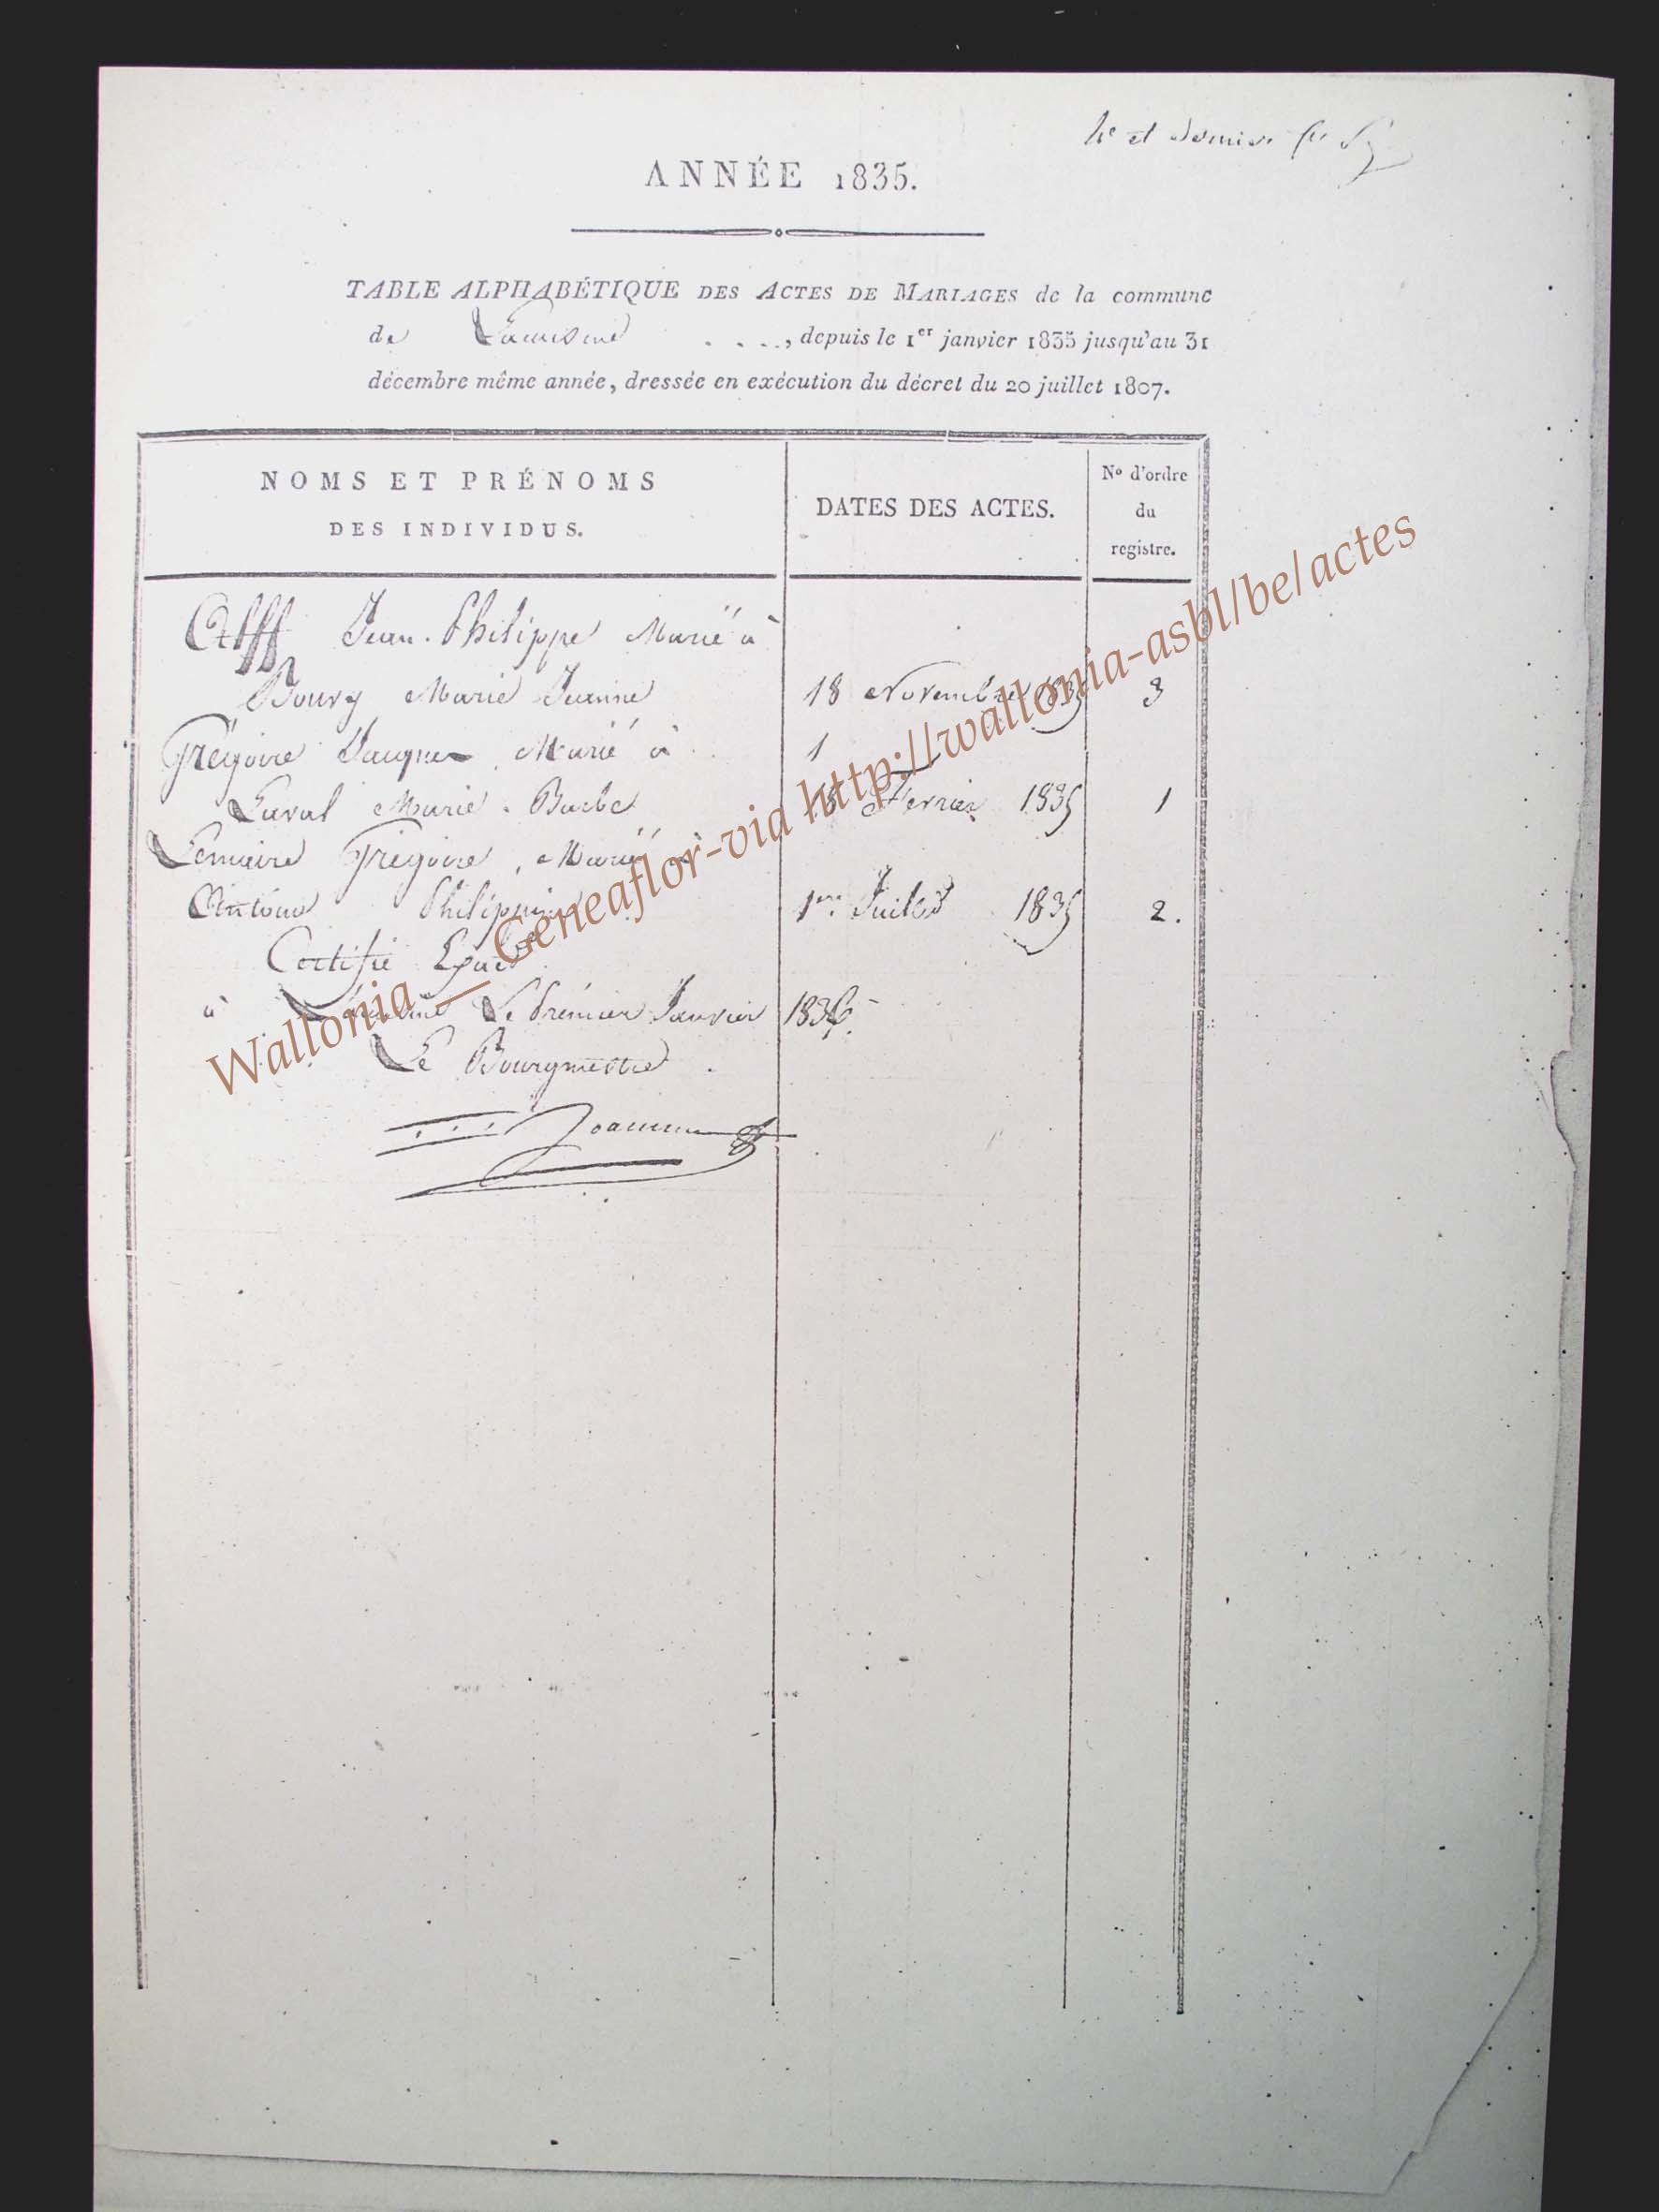 4e et dernier
ANNÉE 1835.
TABLE ALPHABÉTIQUE DES ACTES DE MARIAGES de la commune
de Lacuisine . . . ., depuis le 1er janvier 1835 jusqu'au 31
décembre même année, dressée en exécution du décret du 20 juillet 1807.
NOMS ET PRÉNOMS
DES INDIVIDUS.
DATES DES ACTES.
No d'ordre
du
registre.
Jean-Philippe Marié à
Bourg Marie Jeanne 18 Novembre 1835 3
Grégoire Jacques Marié à 1
Laval Marie Barbe 18 Fevrier 1835 1
Lemaire Grégoire, Marié à
Antoine Philippine 1er Juilet 1835 2.
Certifié Exact
à Lacuisine Le Prémier Janvier 1836
Le Bourgmestre
Wallonia _ Geneaflor-via http://wallonia-asbl/be/actes